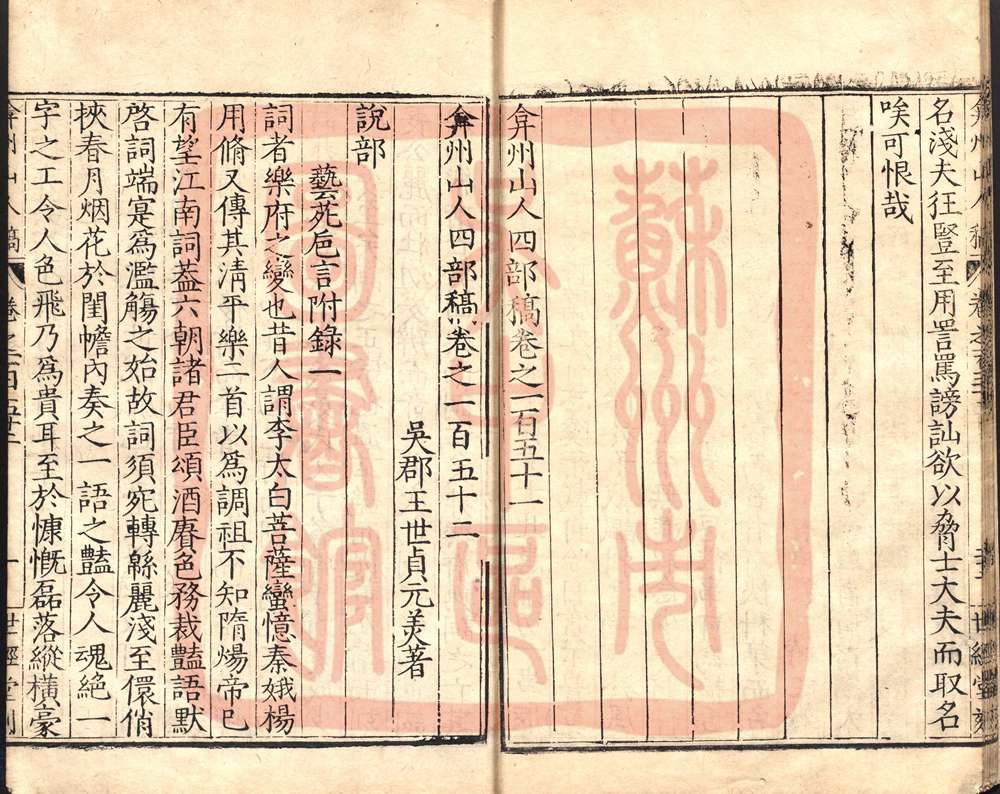 名淺夫狂豎至用詈罵謗訕欲以脅士大夫而取名
唉可恨哉
弇州山人四部稿卷之一百五十一
弇州山人四部稿卷之一百五十二
吳郡王世貞元美著
說部
藝苑巵言附錄一
詞者樂府之變也昔人謂李太白菩薩蠻憶秦娥楊
用脩又傳其清平樂二首以爲調祖不知隋煬帝已
有望江南詞蓋六朝諸君臣頌酒賡色務裁豔語默
啓詞端寔爲濫觴之始故詞須宛轉緜麗淺至儇俏
挾春月烟花於閨幨內奏之一語之豔令人魂絕一
字之工令人色飛乃爲貴耳至於慷慨磊落縱橫豪
蘇州市
圖書館